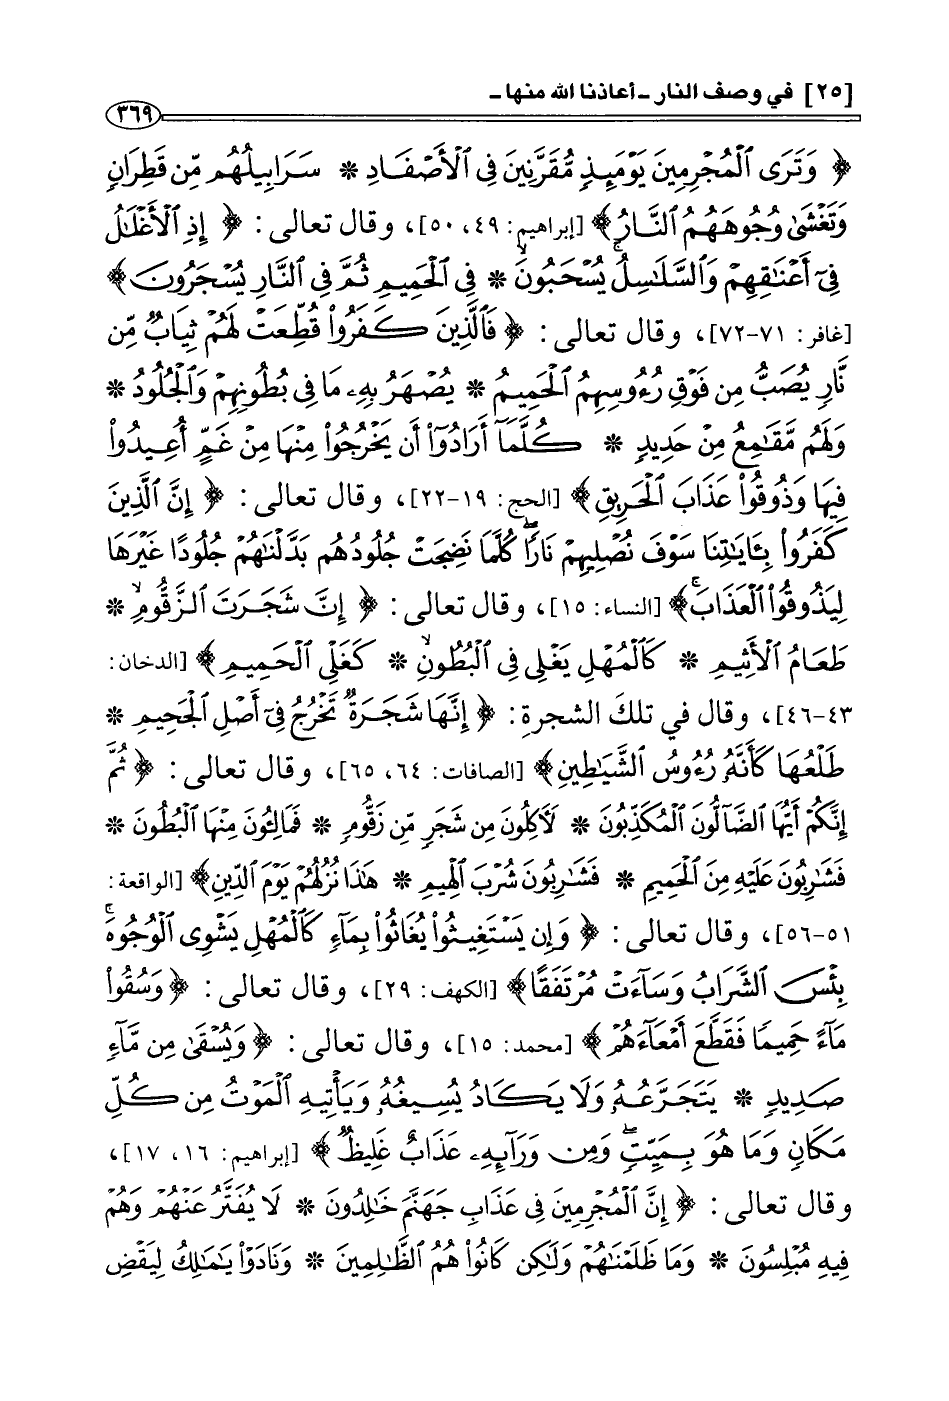 [٢٥] في وصف النار - أعاذنا الله منها -
٣٦٩
﴿ وَتَرَى ٱلْمُجْرِمِينَ يَوْمَئِذٍ مُّقَرَّنِينَ فِى ٱلْأَصْفَادِ * سَرَابِيلُهُم مِّن قَطِرَانٍ
وَتَغْشَىٰ وُجُوهَهُمُ ٱلنَّارُ﴾ [إبراهيم: ٤٩، ٥٠]، وقال تعالى: ﴿ إِذِ ٱلْأَغْلَـٰلُ
فِىٓ أَعْنَـٰقِهِمْ وَٱلسَّلَـٰسِلُ يُسْحَبُونَ * فِى ٱلْحَمِيمِ ثُمَّ فِى ٱلنَّارِ يُسْجَرُونَ﴾
[غافر: ٧١-٧٢]، وقال تعالى: ﴿ فَٱلَّذِينَ كَفَرُوا۟ قُطِّعَتْ لَهُمْ ثِيَابٌ مِّن
نَّارٍ يُصَبُّ مِن فَوْقِ رُءُوسِهِمُ ٱلْحَمِيمُ * يُصْهَرُ بِهِۦ مَا فِى بُطُونِهِمْ وَٱلْجُلُودُ *
وَلَهُم مَّقَـٰمِعُ مِنْ حَدِيدٍ * كُلَّمَآ أَرَادُوٓا۟ أَن يَخْرُجُوا۟ مِنْهَا مِنْ غَمٍّ أُعِيدُوا۟
فِيهَا وَذُوقُوا۟ عَذَابَ ٱلْحَرِيقِ﴾ [الحج: ١٩-٢٢]، وقال تعالى: ﴿ إِنَّ ٱلَّذِينَ
كَفَرُوا۟ بِـَٔايَـٰتِنَا سَوْفَ نُصْلِيهِمْ نَارًۭا ۖ كُلَّمَا نَضِجَتْ جُلُودُهُم بَدَّلْنَـٰهُمْ جُلُودًا غَيْرَهَا
لِيَذُوقُوا۟ ٱلْعَذَابَ ۚ﴾ [النساء: ١٥]، وقال تعالى: ﴿ إِنَّ شَجَرَتَ ٱلزَّقُّومِ *
طَعَامُ ٱلْأَثِيمِ * كَٱلْمُهْلِ يَغْلِى فِى ٱلْبُطُونِ * كَغَلْىِ ٱلْحَمِيمِ﴾ [الدخان:
٤٣-٤٦]، وقال في تلك الشجرة: ﴿ إِنَّهَا شَجَرَةٌ تَخْرُجُ فِىٓ أَصْلِ ٱلْجَحِيمِ *
طَلْعُهَا كَأَنَّهُۥ رُءُوسُ ٱلشَّيَـٰطِينِ﴾ [الصافات: ٦٤، ٦٥]، وقال تعالى: ﴿ ثُمَّ
إِنَّكُمْ أَيُّهَا ٱلضَّآلُّونَ ٱلْمُكَذِّبُونَ * لَـَٔاكِلُونَ مِن شَجَرٍ مِّن زَقُّومٍ * فَمَالِـُٔونَ مِنْهَا ٱلْبُطُونَ *
فَشَـٰرِبُونَ عَلَيْهِ مِنَ ٱلْحَمِيمِ * فَشَـٰرِبُونَ شُرْبَ ٱلْهِيمِ * هَـٰذَا نُزُلُهُمْ يَوْمَ ٱلدِّينِ﴾ [الواقعة:
٥١-٥٦]، وقال تعالى: ﴿ وَإِن يَسْتَغِيثُوا۟ يُغَاثُوا۟ بِمَآءٍ كَٱلْمُهْلِ يَشْوِى ٱلْوُجُوهَ ۚ
بِئْسَ ٱلشَّرَابُ وَسَآءَتْ مُرْتَفَقًا﴾ [الكهف: ٢٩]، وقال تعالى: ﴿ وَسُقُوا۟
مَآءً حَمِيمًا فَقَطَّعَ أَمْعَآءَهُمْ﴾ [محمد: ١٥]، وقال تعالى: ﴿ وَيُسْقَىٰ مِن مَّآءٍ
صَدِيدٍ * يَتَجَرَّعُهُۥ وَلَا يَكَادُ يُسِيغُهُۥ وَيَأْتِيهِ ٱلْمَوْتُ مِن كُلِّ
مَكَانٍ وَمَا هُوَ بِمَيِّتٍ ۖ وَمِن وَرَآئِهِۦ عَذَابٌ غَلِيظٌ﴾ [إبراهيم: ١٦، ١٧]،
وقال تعالى: ﴿ إِنَّ ٱلْمُجْرِمِينَ فِى عَذَابِ جَهَنَّمَ خَـٰلِدُونَ * لَا يُفَتَّرُ عَنْهُمْ وَهُمْ
فِيهِ مُبْلِسُونَ * وَمَا ظَلَمْنَـٰهُمْ وَلَـٰكِن كَانُوا۟ هُمُ ٱلظَّـٰلِمِينَ * وَنَادَوْا۟ يَـٰمَـٰلِكُ لِيَقْضِ